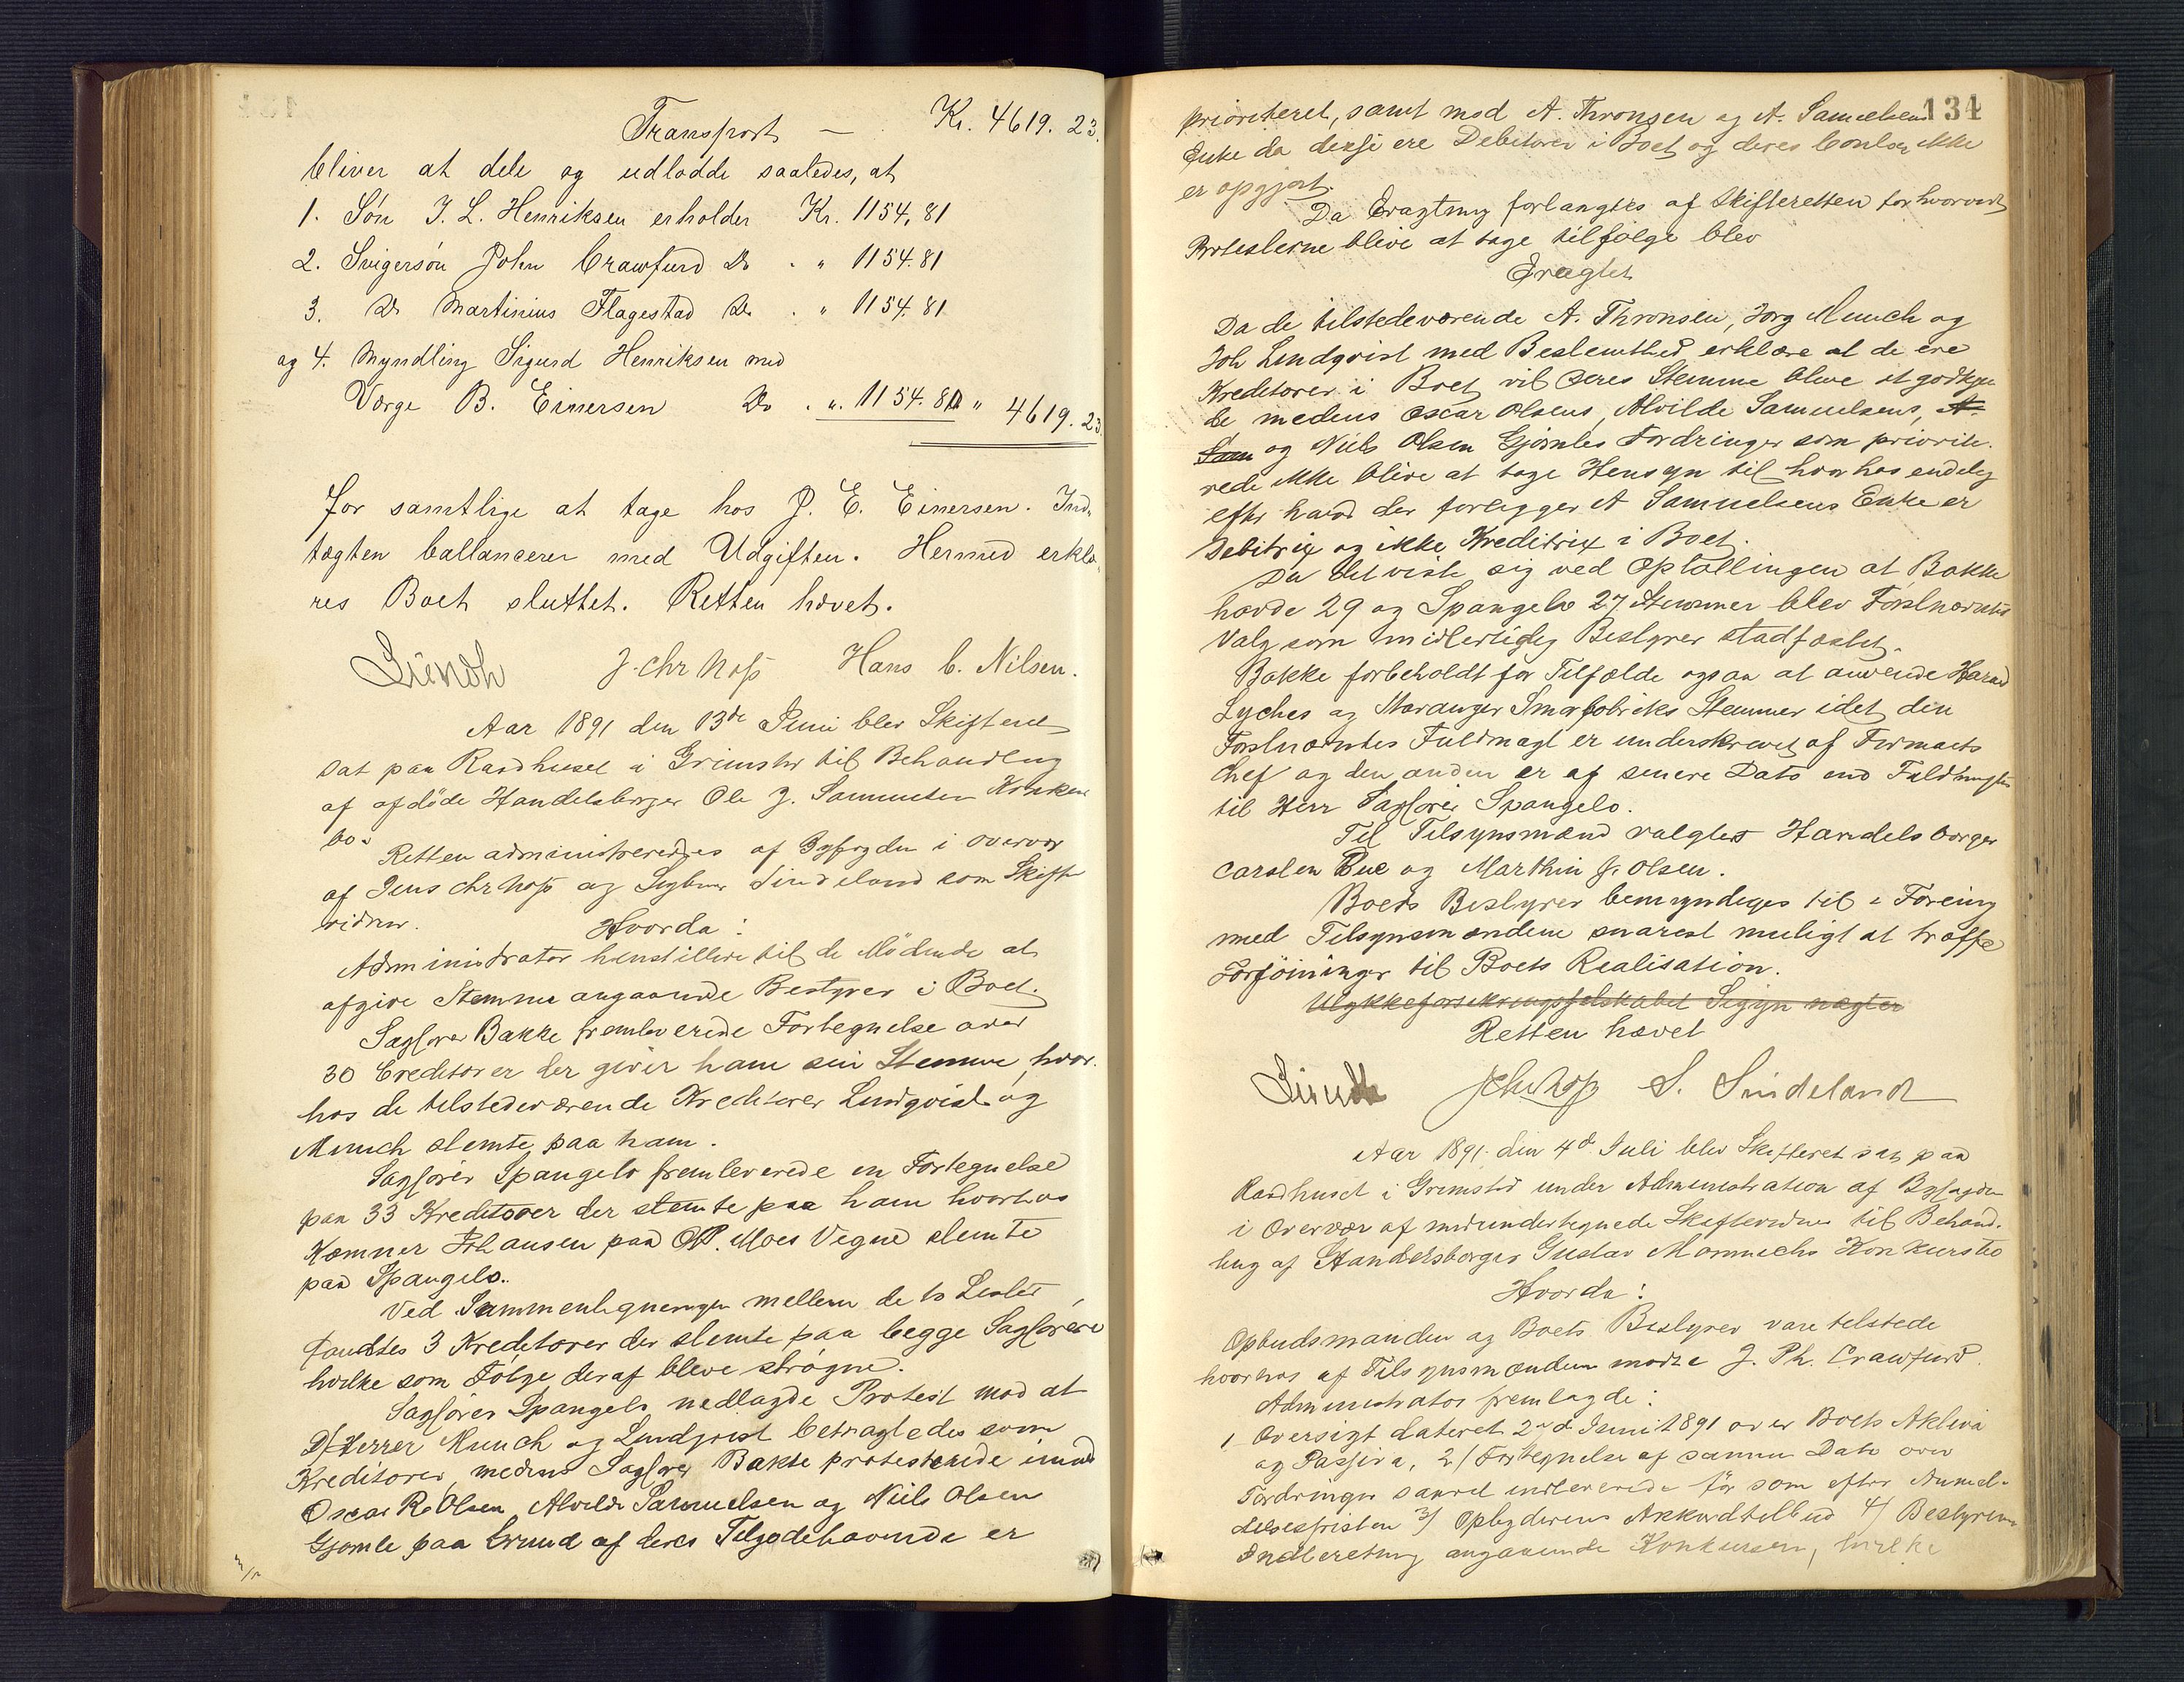 Transport — Kr. 4619. 23.
bliver at dele og udlodde saaledes, at
1. Søn J. L. Henriksen erholder Kr. 1154,81
2. Svigersøn John Crawfurd Do . " 1154.81
3. Do Martinius Flagestad Do . " 1154.81
og 4. Myndling Sigurd Henriksen med
Værge B. Einersen Do . ". 1154.80 " 4619.23.
for samtlige at tage hos J. E. Einersen. Ind-
tægten ballancerer med Udgiften. Hermed erklæ-
res Boet sluttet. Retten hævet.
Lündh J. Chr Hoss Hans C. Nilsen.
Aar 1891 den 13de Juni blev Skifteret
sat paa Raadhuset i Grimstad til Behandling
af afdøde Handelsborger Ole J. Samuelsen Konkurs
bo.
Retten administreredes af Byfogden i Overvær
af Jens Chr Hoss og Sindeland som Skifte
vidner.
Hvorda:
Administrator henstillede til de Mødende at
afgive Stemme angaaende Bestyrer i Boet.
Sagfører Bakke fremleverede Fortegnelse over
30 Creditorer der giver ham sin Stemme, hvor-
hos de tilstedeværende Kreditorer Lindqvist og
Munch stemte paa ham.
Sagfører Spangelo fremleverede en Fortegnelse
paa 33 Kreditorer der stemte paa ham hvorhos
Kæmner Johansen paa O.P. Moes Vegne stemte
paa Spangelo.
Ved Sammenligningen mellem de to Lister
fandtes 3 Kreditorer der stemte paa begge Sagførere
hvilke som Følge deraf bleve strøgne.
Sagfører Spangelo nedlagde Protest mod at
D'Herrer Munch og Lindqvist betragtedes som
Kreditorer, medens Sagfører Bakke protesterede imod
Oscar R. Olsen, Alvilde Samuelsen og Niels Olsen
Gjømle paa Grund af deres Tilgodehavende er
134
prioriteret, samt mod A. Thronsen og A. Samuelsens
Enke da disse ere Debitorer i Boet og deres Conto ikke
er opgjort.
Da Eragtning forlangtes af Skifteretten forhvorvidt
Protesterne blive at tage tilfølge blev
Eragtet
Da de tilstedeværende A. Thronsen, Jørg Munch og
Joh Lindqvist med Bestemthed erklære at de ere
Kreditorer i Boet, vil deres Stemme blive at godkjen
de medens Oscar Olsens, Alvilde Samuelsens, A.
Sam og Niels Olsen Gjømles Fordringer som priorite-
rede ikke blive at tage Hensyn til hvorhos endelig
efter hvad der foreligger A Samuelsens Enke er
Debitrix og ikke Kreditrix i Boet.
Da det viste sig ved Optællingen at Bakke
havde 29 og Spangelo 27 Stemmer blev Førstnævntes
Valg som midlertidig Bestyrer stadfæstet.
Bakke forbeholdt for Tilfælde ogsaa at anvende Harald
Lyches og Stavanger Smørfabriks Stemmer idet den
Førstnævntes Fuldmagt er underskrevet af Firmaets
Chef og den anden er af senere Dato end Fuldmagten
til Herr Sagfører Spangelo.
Til Tilsynsmænd valgtes Handelsborger
Carsten Bue og Marthin J. Olsen.
Boets Bestyrer bemyndiges til i Forening
med Tilsynsmændene snarest muligt at træffe
Forføininger til Boets Realisation.
Ulykkesforsikringsselskabet Sigyn nægter
Retten hævet
Lündh J Chr Hoss S. Sindeland
Aar 1891 den 4de Juli blev Skifteret sat paa
Raadhuset i Grimstad under Administration af Byfogden
i Overvær af medundertegnede Skiftevidner til Behand-
ling af Handelsborger Gustav Konkursbo
Hvorda:
Opbudsmanden og Boets Bestyrer vare tilstede
hvorhos af Tilsynsmændene mødte J. Ph. Crawfurd.
Administrator fremlagde:
1 Oversigt dateret 2nd Juni 1891 over Boets Aktiva
og Passiva, 2/ Fortegnelse af samme Dato over
Fordringer saavel indleverede før som efter Anmel-
delsesfristen 3/ Opbyderens Akkordtilbud 4/ Bestyrerens
Indberetning angaaende Konkursen, hvilke